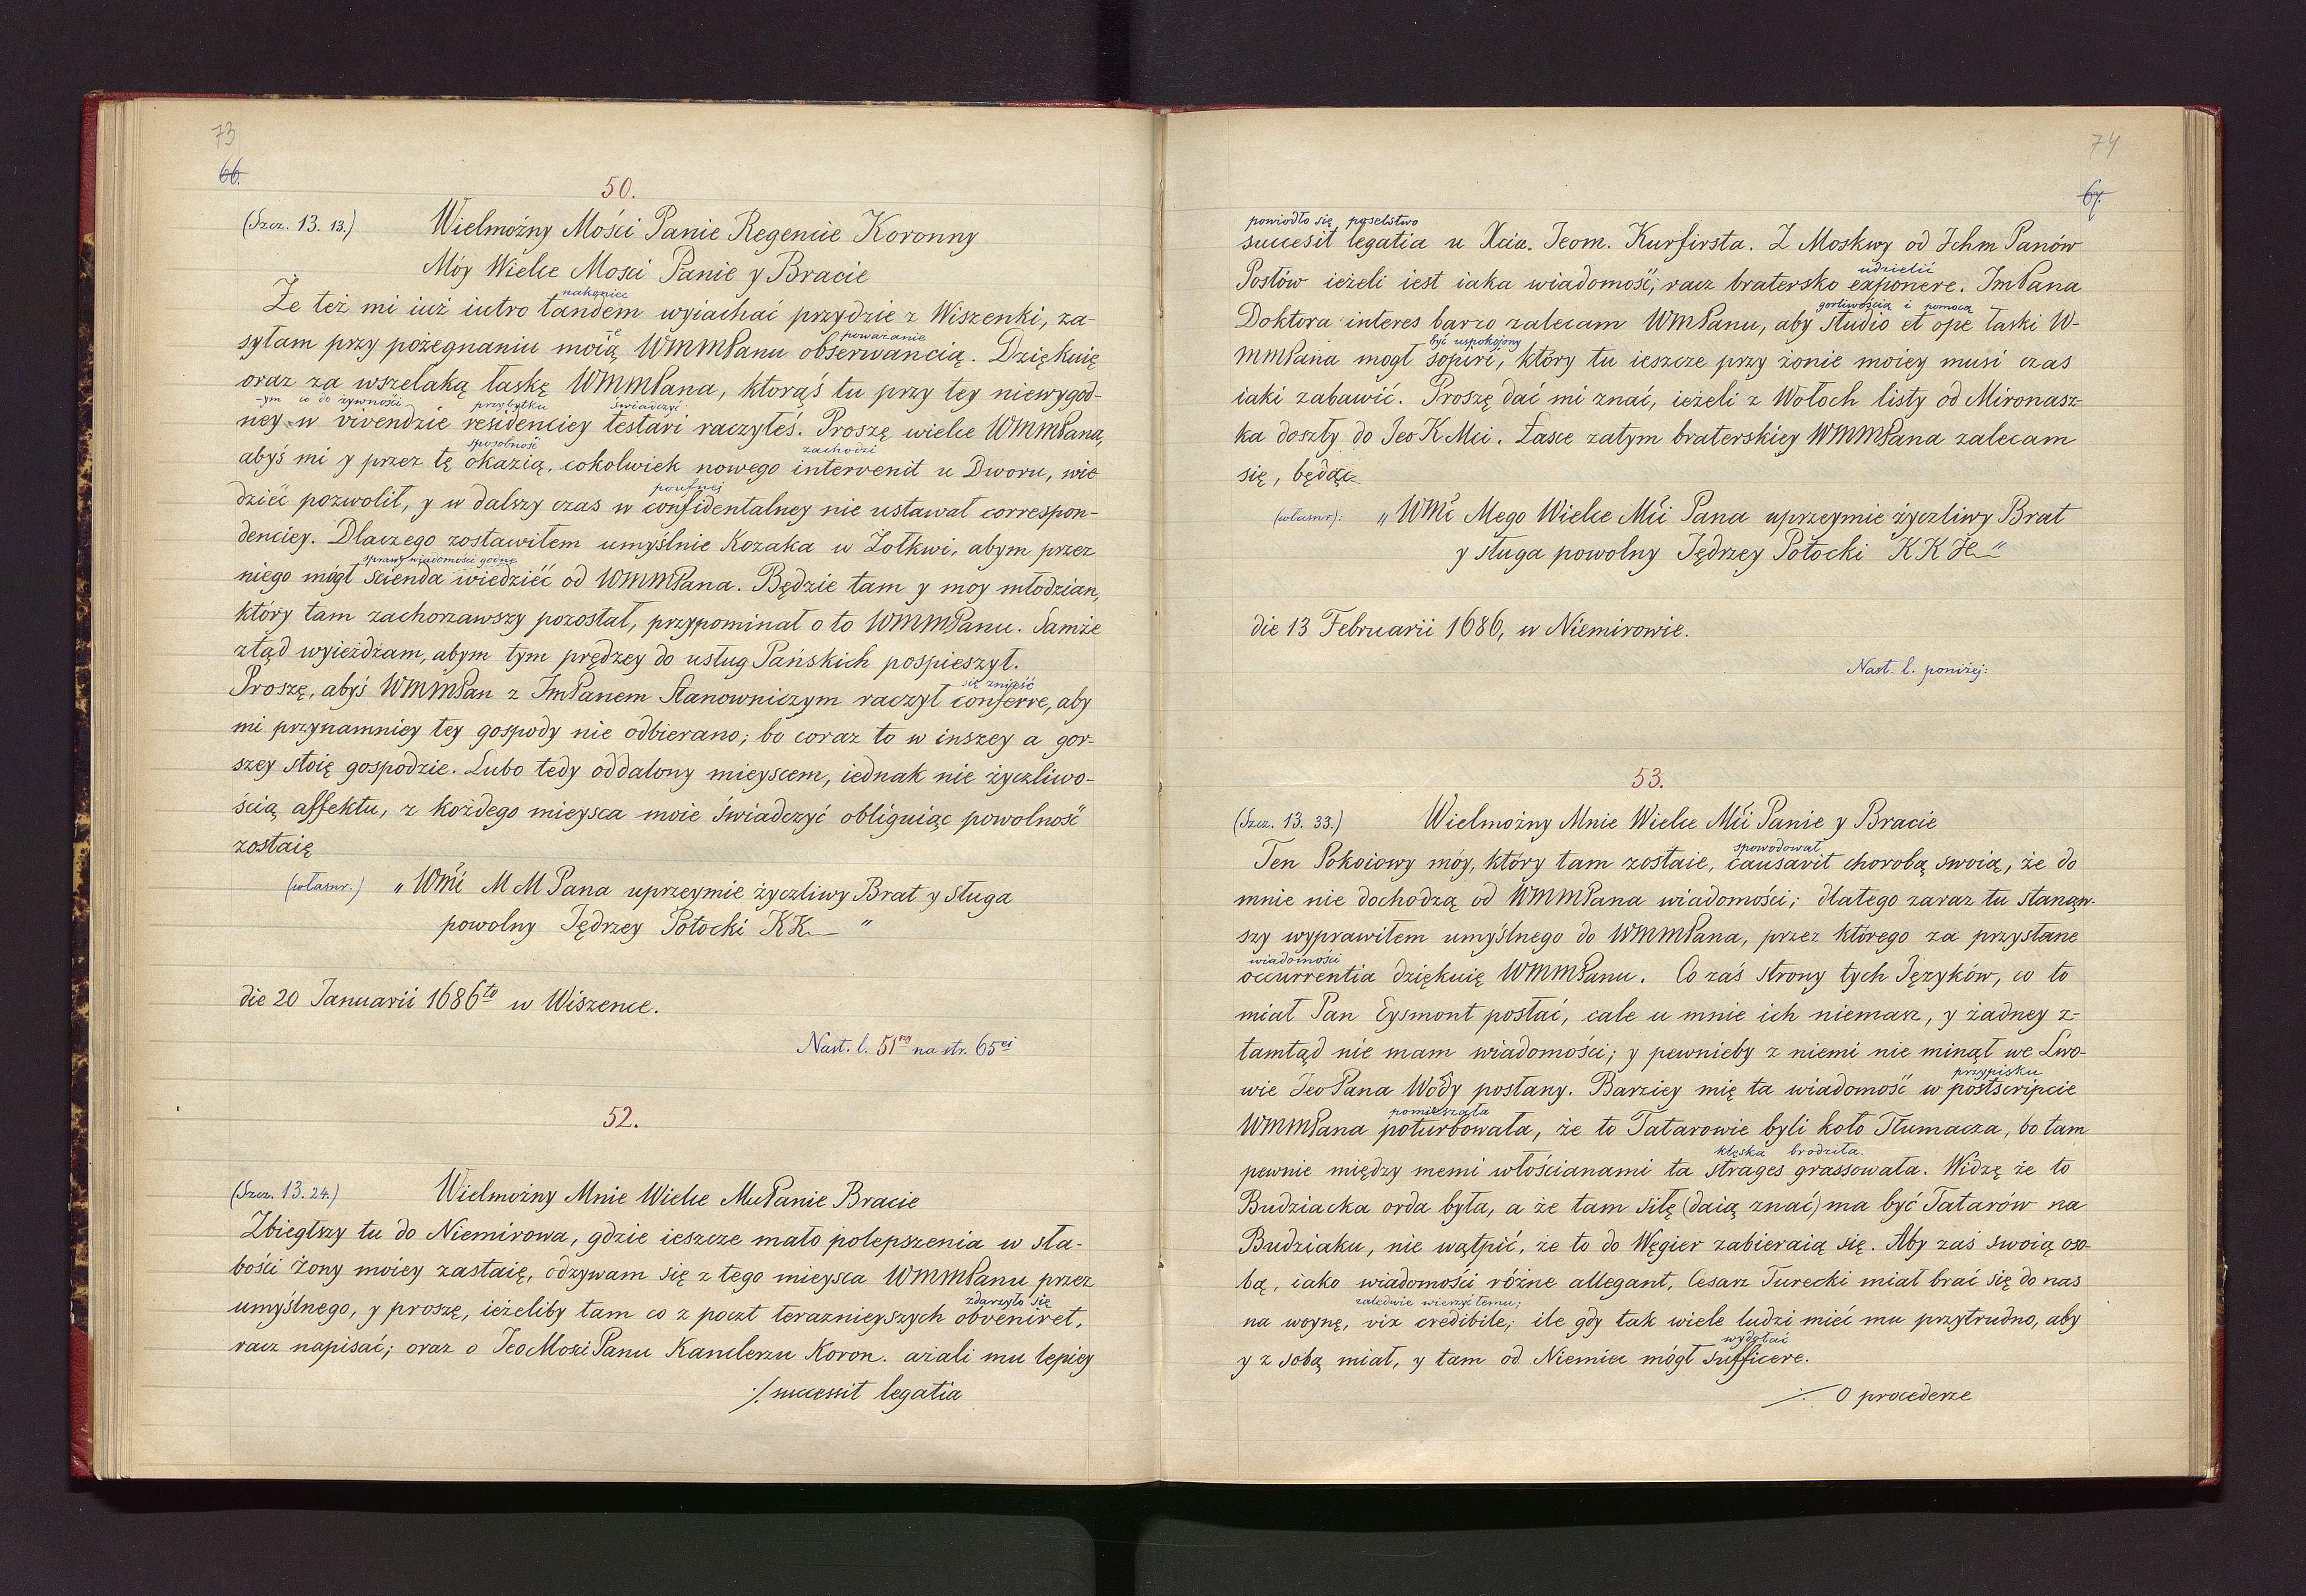 73
66.
50.
(Szcz. 13. 13.) Wielmożny Mości Panie Regencie Koronny
Móy Wielce Mosci Panie y Bracie
nakoniec
Że też mi iuż iutro tandem wyiachać przydzie z Wiszenki, za-
poważanie
syłam przy pożegnaniu moią WMMPanu obserwancią. Dziękuię
oraz za wszelaką łaskę WMMPana, ktorąś tu przy tey niewygod-
-ym co do żywności przybytku świadczyć
ney w vivendzie residenciey testari raczyłeś. Proszę wielce WMMPana,
sposobność zachodzi
abyś mi y przez tę okazią, cokolwiek nowego intervenit u Dworu, wie
poufnej
dzieć pozwolił, y w dalszy czas w confidentalney nie ustawał correspon-
denciey. Dlaczego zostawiłem umyślnie Kozaka w Żołkwi, abym przez
sprawy wiadomości godne
niego mógł scienda wiedzieć od WMMPana. Będzie tam y moy młodzian,
który tam zachorzawszy pozostał, przypominał o to WMMPanu. Samże
ztąd wyieżdżam, abym tym prędzey do usług Pańskich pospieszył.
się znieść
Proszę, abyś WMMPan z ImPanem Stanowniczym raczył conferre, aby
mi przynamniey tey gospody nie odbierano; bo coraz to w inszey a gor-
szey stoię gospodzie. Lubo tedy oddalony mieyscem, iednak nie życzliwo-
ścią affektu, z każdego mieysca moie świadczyć obliguiąc powolność
zostaię
(własnr.) „WMci M M Pana uprzeymie życzliwy Brat y sługa
powolny Jędrzey Potocki KK "
die 20 Januarii 1686to w Wiszence.
Nast. l. 51szy na str. 65ei
52.
(Szcz. 13. 24.) Wielmożny Mnie Wielce McPanie Bracie
Zbiegłszy tu do Niemirowa, gdzie ieszcze mało polepszenia w sła-
bości żony moiey zastaię, odzywam się z tego mieysca WMMPanu przez
zdarzyło się
umyślnego, y proszę, ieżeliby tam co z poczt teraznieyszych obveniret,
racz napisać; oraz o JeoMosciPanu Kanclerzu Koron. azali mu lepiey
./. successit legatia
74
67.
powiodło się poselstwo
succesit legatia u Xcia. Jeom. Kurfirsta. Z Moskwy od Ichm Panów
udzielić
Posłów ieżeli iest iaka wiadomość; racz bratersko exponere. ImPana
gorliwością i pomocą
Doktora interes barzo zalecam WMPanu, aby studio et ope łaski W-
być uspokojony
MMPana mogł sopiri, który tu ieszcze przy żonie moiey musi czas
iaki zabawić. Proszę dać mi znać, ieżeli z Wołoch listy od Mironasz-
ka doszły do Jeo K Mci. Łasce zatym braterskiey WMMPana zalecam
się, będąc
(własnr): „WMci Mego Wielce Mci Pana uprzeymie życzliwy Brat
y sługa powolny Jędrzey Potocki K K H "
die 13 Februarii 1686, w Niemirowie.
Nast. l. poniżej:
53.
(Szcz. 13. 33.) Wielmożny Mnie Wielce Mci Panie y Bracie
spowodował
Ten Pokoiowy móy, który tam zostaie, causavit chorobą swoią, że do
mnie nie dochodzą od WMMPana wiadomości; dlatego zaraz tu stanąw-
szy wyprawiłem umyślnego do WMMPana, przez którego za przysłane
wiadomości
occurrentia dziękuię WMMPanu. Co zaś strony tych Języków, co to
miał Pan Eysmont posłać, cale u mnie ich niemasz, y żadney z-
tamtąd nie mam wiadomości; y pewnieby z niemi nie minął we Lwo-
przypisku
wie JeoPana Wody posłany. Barziey mię ta wiadomość w postscripcie
pomieszała
WMMPana poturbowała, że to Tatarowie byli koło Tłumacza, bo tam
klęska brodziła.
pewnie między memi włościanami ta strages grassowała. Widzę że to
Budziacka orda była, a że tam siłę (daią znać) ma być Tatarów na
Budziaku, nie wątpić, że to do Węgier zabieraią się. Aby zaś swoią oso-
bą, iako wiadomości różne allegant, Cesarz Turecki miał brać się do nas
zaledwie wierzyć temu;
na woynę, vix credibile; ile gdy tak wiele ludzi mieć mu przytrudno, aby
wydołać
y z sobą miał, y tam od Niemiec mógł sufficere.
./. O procederze